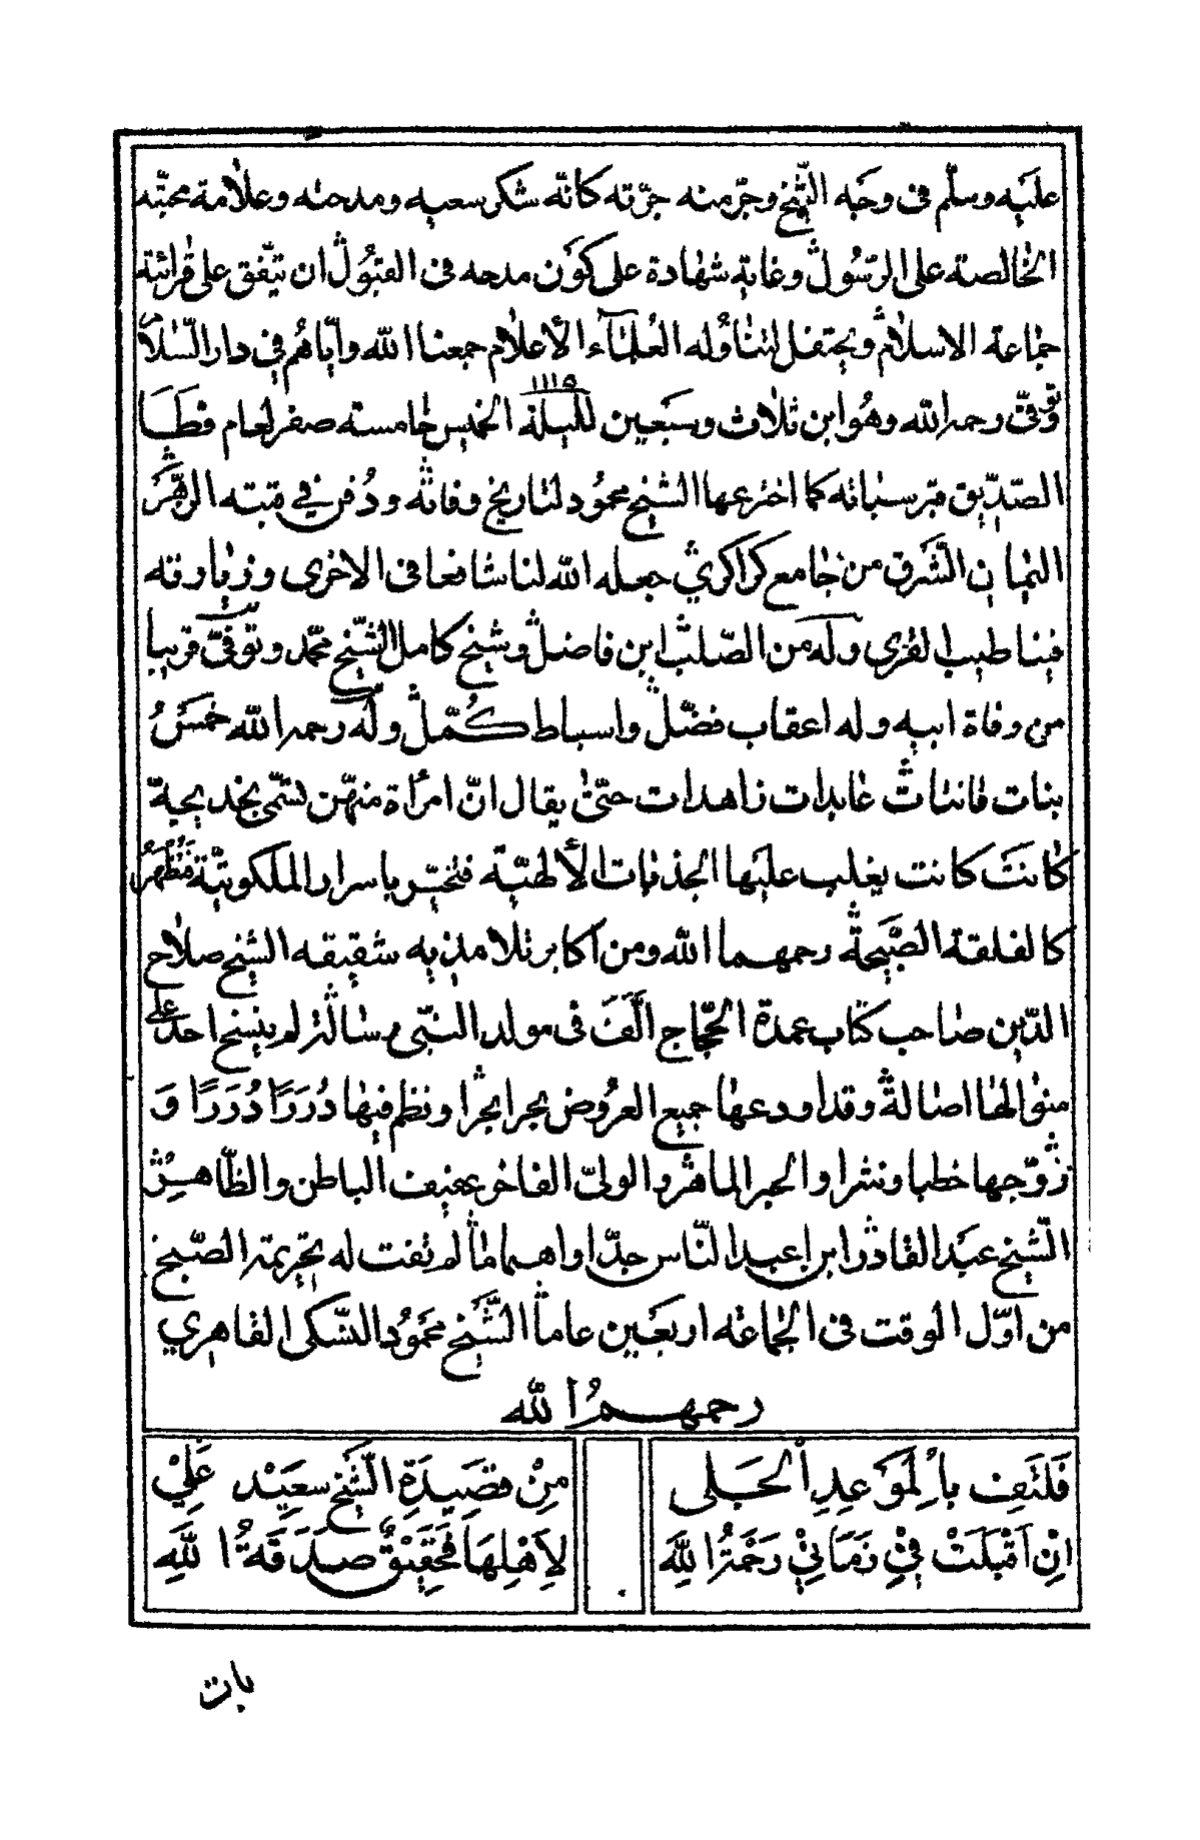 عليه وسلّم فى وجه الشّيخ وجرّ منه جرّته كانّه شكر سعيه ومدحته وعلامة محبّته
الخالصة على الرّسول وغاية شهادة على كون مدحه فى القبول ان يتّفق على قرائة
جماعة الاسلام ويحتفل لتناوله العلماء الأعلام جمعنا الله وايّاهم فى دار السّلام
توفّى رحمه الله وهو ابن ثلاث وسبعين لليلة الخميس خامسة صفر لعام قطا
١١١٥
الصّدّيق قبر سباته كما اخترعها الشيخ محمود لتاريخ وفاته ودفن في قبته الزهر
اليمان الشّرق من جامع كراكري جعله الله لنا شافعا فى الاخرى وزيارته
فينا طيب القرى وله من الصّلب ابن فاضل وشيخ كامل الشّيخ محمّد وتوفّى قريبا
من وفاة ابيه وله اعقاب فضّل واسباط كمّل وله رحمه الله خمس
بنات قانتات عابدات زاهدات حتّى يقال انّ امرأة منهّن تسمّى بخديجة
كانت كانت يغلب عليها الجذبات الألهيّة فتخبّر باسرار الملكوتيّة فتظهر
كالفلقة الصّبيحة رحمهما الله ومن اكابر تلاميذه شقيقه الشيخ صلاح
الدّين صاحب كتاب عمدة الحجّاج الّف فى مولد النبّى رسالة لم ينسخ احد على
منوالها اصالة وقد اودعها جميع العروض بحرا بحرا ونظم فيها دُرَرًا دُرَرًا وَ
زوّجها خطبا ونثرا والحبر الماهر والولىّ الفاخر عفيف الباطن والظّاهر
الشّيخ عبد القادر ابن اعبد النّاس جدّا واهماما لم تفت له تحريمة الصّبح
من اوّل الوقت فى الجماعة اربعين عاما الشّيخ محمود السّكى القاهري
رحمهم الله
فَلْتَفِ بِالْمَوْعِدِ الْجَلِى مِنْ قَصِيدَةِ الشَّيْخِ سَعِيْد عَلِيْ
اِنْ اَقْبَلَتْ فِيْ زَمَانِيْ رَحْمَةُ اللّٰهِ لِاَهْلِهَا فَحَقِيْقٌ صَدَقَةُ اللّٰهِ
بات